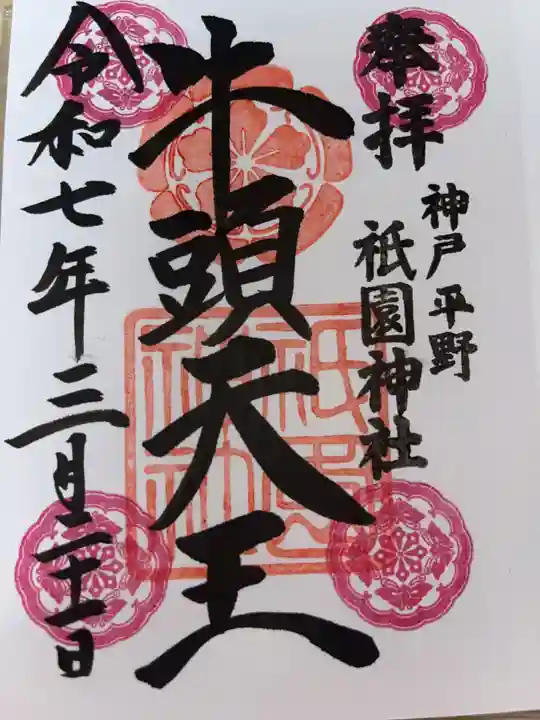 奉拝
神戸平野
祇園神社
牛頭天王
令和七年三月二十一日
祇園神社